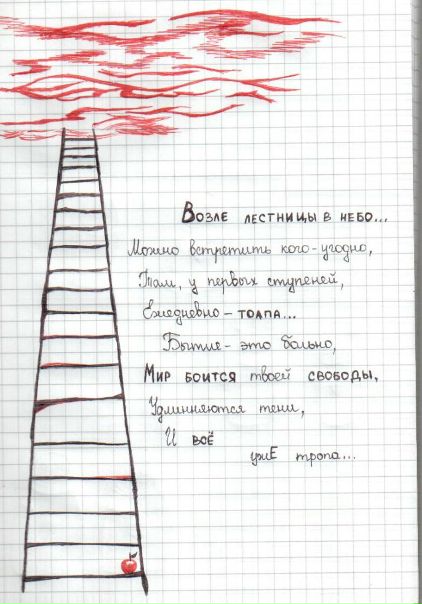 Возле лестницы в небо...
Можно встретить кого-угодно,
Там, у первых ступеней,
Ежедневно - толпа...
Бытие - это больно,
Мир боится твоей свободы,
Удлинняются тени,
И всё
ужЕ тропа...